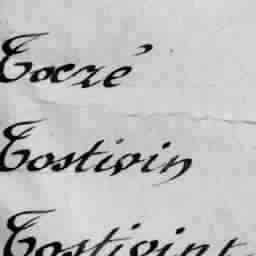 Toczé
Tostivin
Tostivint